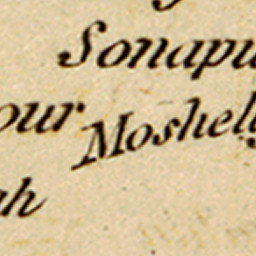 Sonapu
our
Moshell
ah